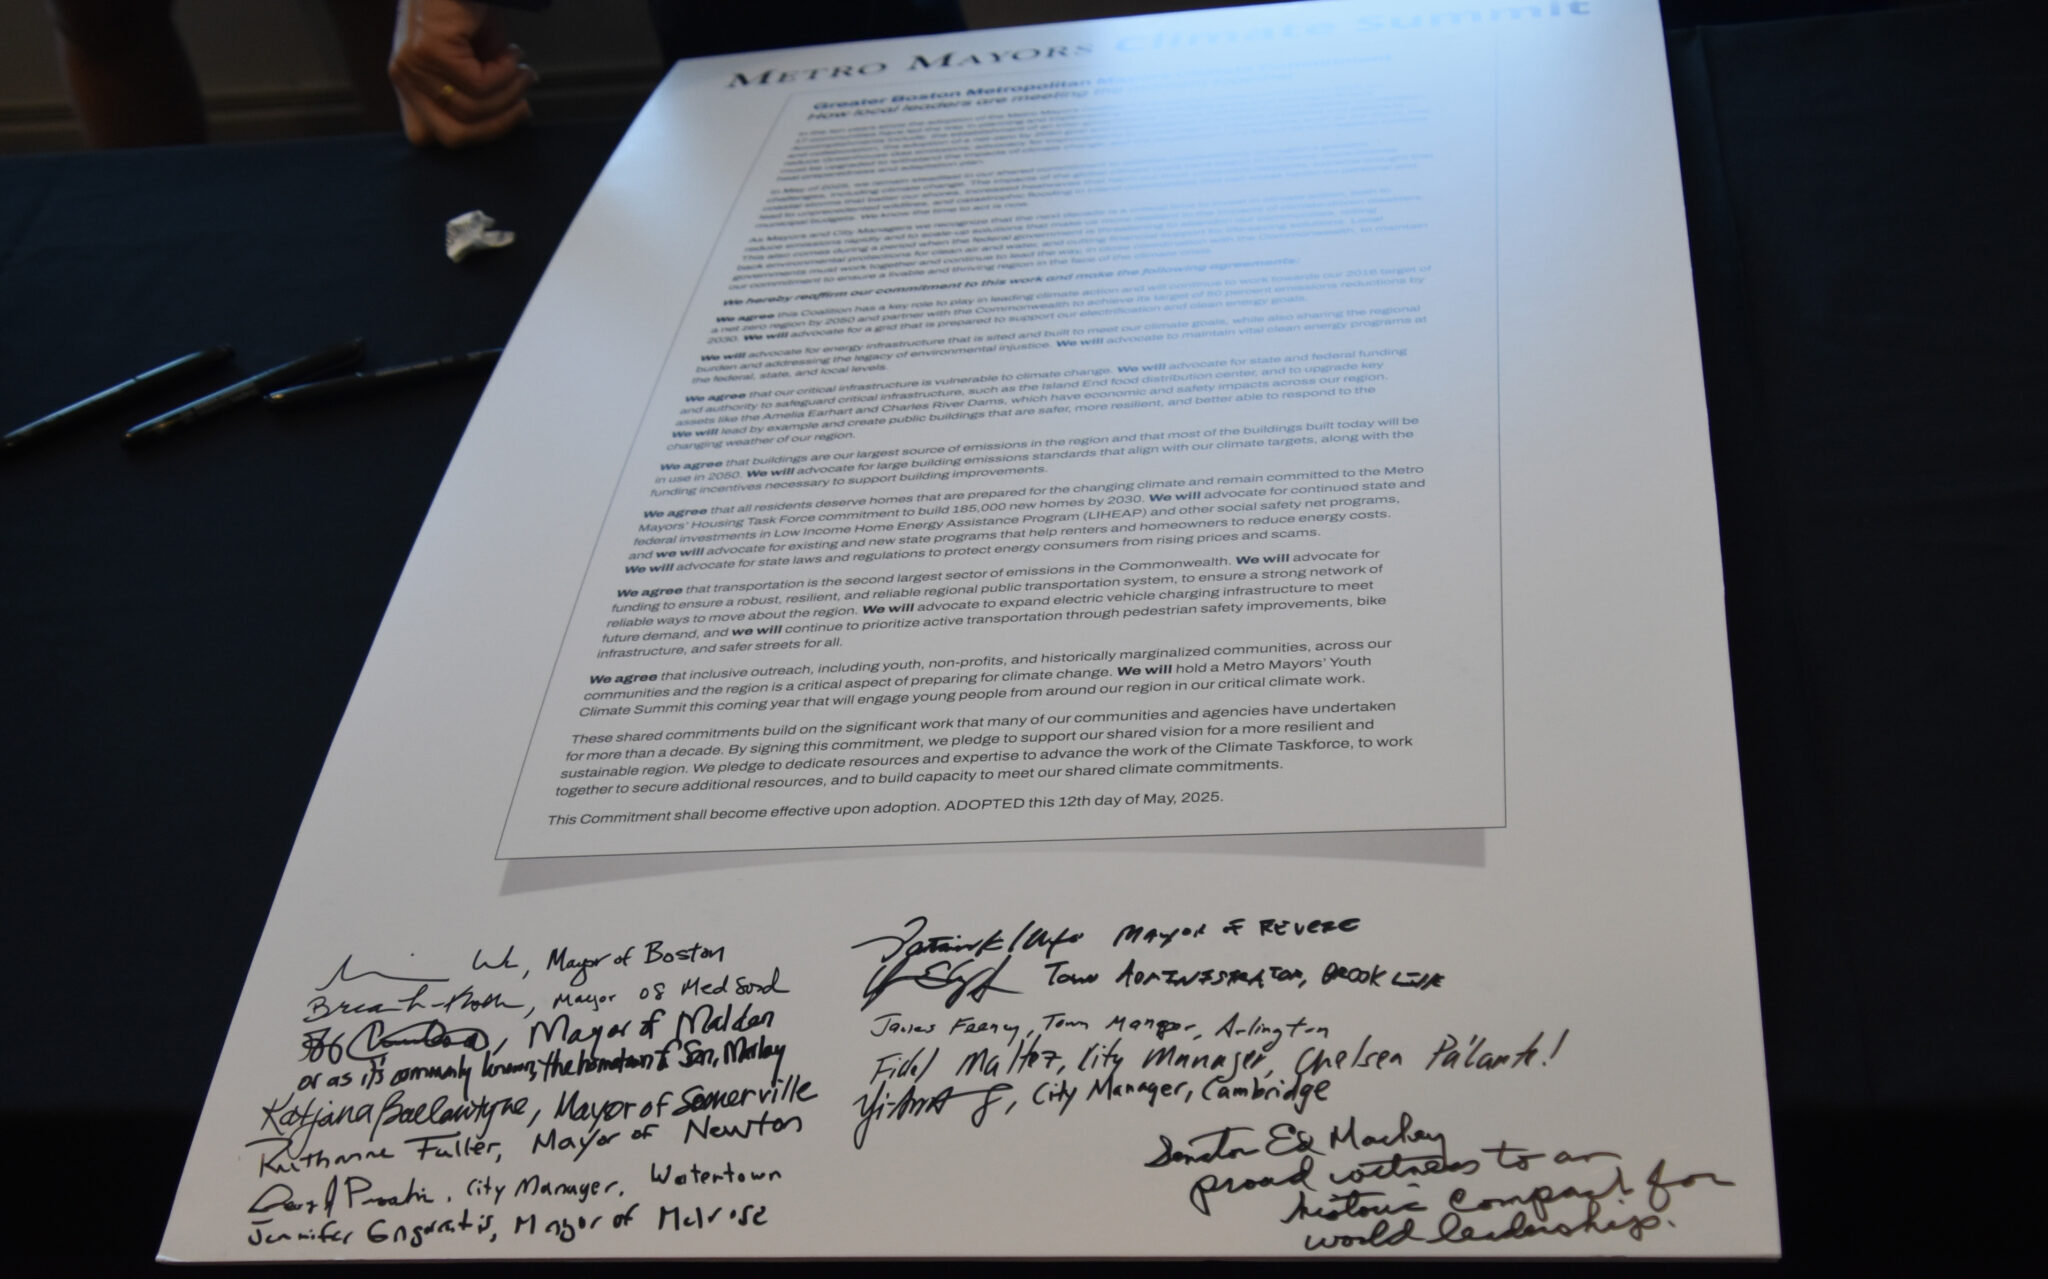 METRO MAYORS Climate Summit
Greater Boston Metropolitan Mayors Climate Commitment
How local leaders are meeting the
municipal budgets. We know the time to act is now.
As Mayors and City Managers we recognize that the next decade is a critical time to invest in climate action, both to
reduce emissions rapidly and to scale-up solutions that make us more
This also comes during a period when the federal government is threatening
back environmental protections for clean air and water, and cutting
governments must work together and continue to lead the way, in close coordination with the Commonwealth, to maintain
our commitment to ensure a livable and thriving region in the face of the climate crisis.
We hereby reaffirm our commitment to this work and make the following agreements:
We agree this Coalition has a key role to play in leading climate action and will continue to work towards our 2016 target of
a net zero region by 2050 and partner with the Commonwealth to achieve its target of 50 percent emissions reductions by
2030. We will advocate for a grid that is prepared to support our electrification and clean energy goals.
We will advocate for energy infrastructure that is sited and built to meet our climate goals, while also sharing the regional
burden and addressing the legacy of environmental injustice. We will advocate to maintain vital clean energy programs at
the federal, state, and local levels.
We agree that our critical infrastructure is vulnerable to climate change. We will advocate for state and federal funding
and authority to safeguard critical infrastructure, such as the Island End food distribution center, and to upgrade key
assets like the Amelia Earhart and Charles River Dams, which have economic and safety impacts across our region.
We will lead by example and create public buildings that are safer, more resilient, and better able to respond to the
changing weather of our region.
We agree that buildings are our largest source of emissions in the region and that most of the buildings built today will be
in use in 2050. We will advocate for large building emissions standards that align with our climate targets, along with the
funding incentives necessary to support building improvements.
We agree that all residents deserve homes that are prepared for the changing climate and remain committed to the Metro
Mayors' Housing Task Force commitment to build 185,000 new homes by 2030. We will advocate for continued state and
federal investments in Low Income Home Energy Assistance Program (LIHEAP) and other social safety net programs,
and we will advocate for existing and new state programs that help renters and homeowners to reduce energy costs.
We will advocate for state laws and regulations to protect energy consumers from rising prices and scams.
We agree that transportation is the second largest sector of emissions in the Commonwealth. We will advocate for
funding to ensure a robust, resilient, and reliable regional public transportation system, to ensure a strong network of
reliable ways to move about the region. We will advocate to expand electric vehicle charging infrastructure to meet
future demand, and we will continue to prioritize active transportation through pedestrian safety improvements, bike
infrastructure, and safer streets for all.
We agree that inclusive outreach, including youth, non-profits, and historically marginalized communities, across our
communities and the region is a critical aspect of preparing for climate change. We will hold a Metro Mayors' Youth
Climate Summit this coming year that will engage young people from around our region in our critical climate work.
These shared commitments build on the significant work that many of our communities and agencies have undertaken
for more than a decade. By signing this commitment, we pledge to support our shared vision for a more resilient and
sustainable region. We pledge to dedicate resources and expertise to advance the work of the Climate Taskforce, to work
together to secure additional resources, and to build capacity to meet our shared climate commitments.
This Commitment shall become effective upon adoption. ADOPTED this 12th day of May, 2025.
Wu, Mayor of Boston
Mayor of Medford
Mayor of Malden
or as it's commonly known, the hometown of
Katjana Ballantyne, Mayor of Somerville
Ruthanne Fuller, Mayor of Newton
City Manager, Watertown
Jennifer Grigoraitis, Mayor of Melrose
Mayor of Revere
Town Administrator, Brookline
James Feeney, Town Manager, Arlington
Fidel Maltez, City Manager, Chelsea Pa'lante!
Yi-An, City Manager, Cambridge
Senator Ed Markey
proud witness to an
historic compact for
world leadership.